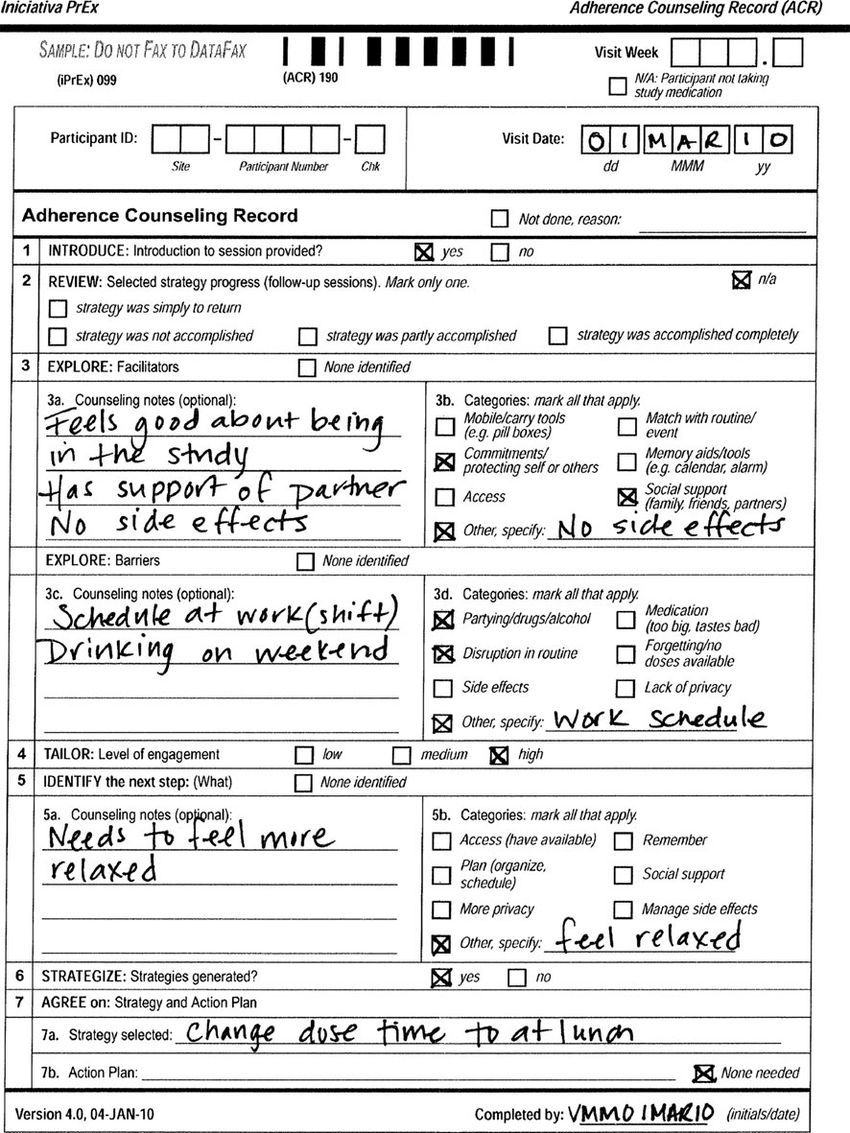 Iniciativa PrEx Adherence Counseling Record (ACR)
SAMPLE: DO NOT FAX TO DATAFAX
(iPrEx) 099 (ACR) 190
Visit Week .
N/A: Participant not taking
study medication
Participant ID: - - Visit Date: 01 MAR 10
Site Participant Number Chk dd MMM yy
Adherence Counseling Record Not done, reason:
1 INTRODUCE: Introduction to session provided? yes no
2 REVIEW: Selected strategy progress (follow-up sessions). Mark only one. n/a
strategy was simply to return
strategy was not accomplished strategy was partly accomplished strategy was accomplished completely
3 EXPLORE: Facilitators None identified
3a. Counseling notes (optional):
Feels good about being
in the study
Has support of partner
No side effects
3b. Categories: mark all that apply.
Mobile/carry tools
(e.g. pill boxes)
Match with routine/
event
Commitments/
protecting self or others
Memory aids/tools
(e.g. calendar, alarm)
Access
Social support
(family, friends, partners)
Other, specify: No side effects
EXPLORE: Barriers None identified
3c. Counseling notes (optional):
Schedule at work (shift)
Drinking on weekend
3d. Categories: mark all that apply.
Partying/drugs/alcohol
Medication
(too big, tastes bad)
Disruption in routine
Forgetting/no
doses available
Side effects Lack of privacy
Other, specify: Work schedule
4 TAILOR: Level of engagement low medium high
5 IDENTIFY the next step: (What) None identified
5a. Counseling notes (optional):
Needs to feel more
relaxed
5b. Categories: mark all that apply.
Access (have available) Remember
Plan (organize,
schedule)
Social support
More privacy Manage side effects
Other, specify: feel relaxed
6 STRATEGIZE: Strategies generated? yes no
7 AGREE on: Strategy and Action Plan
7a. Strategy selected: Change dose time to at lunch
7b. Action Plan: None needed
Version 4.0, 04-JAN-10 Completed by: VMM01MAR10 (initials/date)